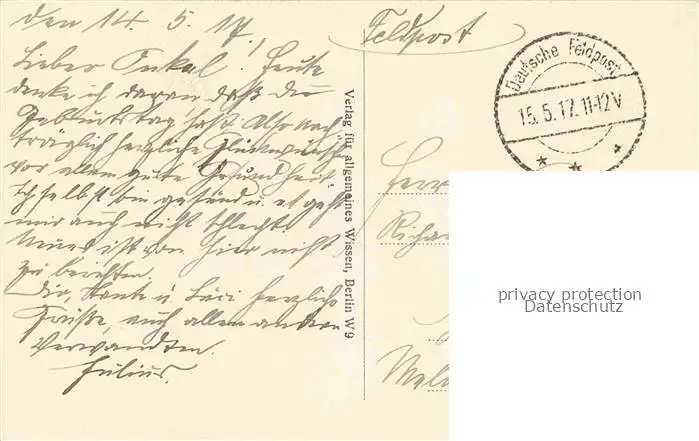 den 14. 5. 17.
Lieber Onkel! Heute
denke ich daran daß Du
Geburtstag hast. Also nach-
träglich herzliche Glückwünsche
vor allem gute Gesundheit.
Ich selbst bin gesund u. es geht
mir auch nicht schlecht.
Neues ist von hier nicht
zu berichten.
Dir, Tante u. Luci herzliche
Grüße, auch allen andern
Verwandten.
Julius.
Verlag für allgemeines Wissen, Berlin W 9
Feldpost
Deutsche Feldpost
15. 5. 17. 11-12 V
Herrn
Richa
privacy protection
Datenschutz